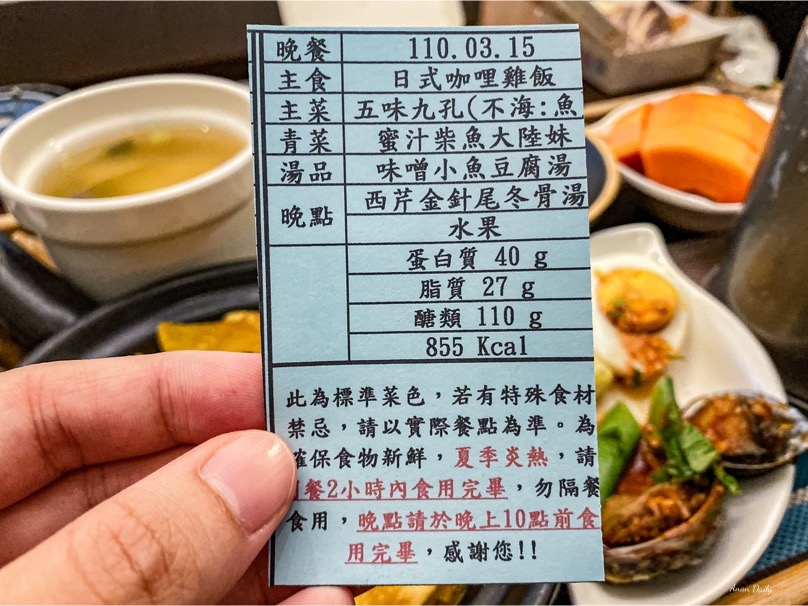 晚餐 110.03.15
主食 日式咖哩雞飯
主菜 五味九孔(不海:魚
青菜 蜜汁柴魚大陸妹
湯品 味噌小魚豆腐湯
晚點 西芹金針尾冬骨湯
水果
蛋白質 40 g
脂質 27 g
醣類 110 g
855 Kcal
此為標準菜色，若有特殊食材
禁忌，請以實際餐點為準。為
確保食物新鮮，夏季炎熱，請
餐2小時內食用完畢，勿隔餐
食用，晚點請於晚上10點前食
用完畢，感謝您!!
Anan Daily